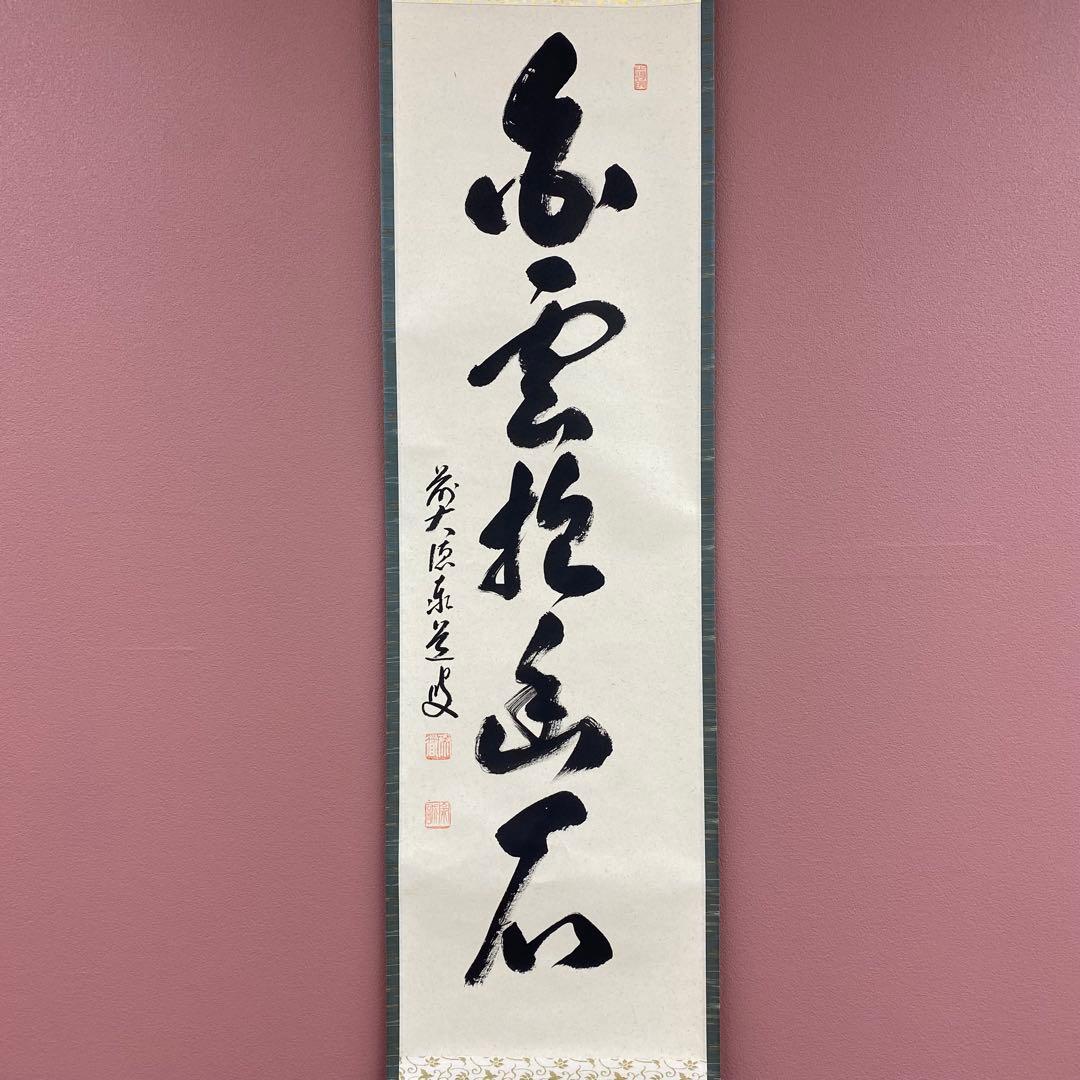 白雲抱幽石
前大徳泰道叟